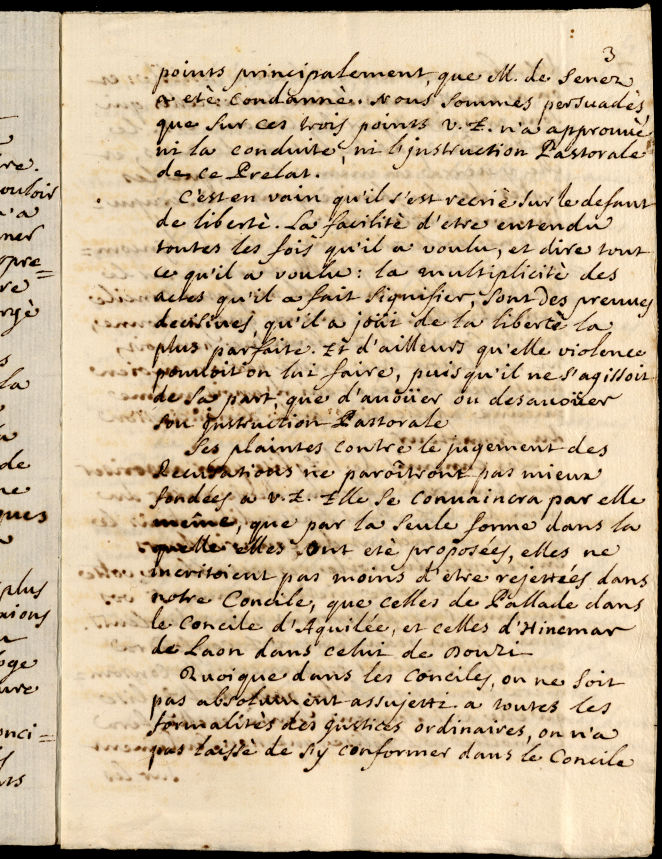 3
points principalement, que M. de Senez
a eté condanné. Nous sommes persuadés
que sur ces trois points V. E. n'a approuué
ni la conduite, ni l'jnstruction Pastorale
de ce Prelat.
C'est en vain qu'il s'est recrié sur le defaut
de liberté. La facilité d'etre entendu
toutes les fois qu'il a voulu, et dire tout
ce qu'il a voulu: la multiplicité des
actes qu'il a fait signifier, sont des preuues
decisiues, qu'il a joüi de la liberté la
plus parfaite. Et d'ailleurs qu'elle violence
pouuoit on lui faire, puis qu'il ne s'agissoit
de sa part, que d'auoüer ou desauoüer
son jnstruction Pastorale
Ses plaintes contre le jugement des
Recusations ne paroîtront pas mieux
fondées a V. E. Elle se conuaincra par elle
même, que par la seule forme dans la
quelle elles ont eté proposées, elles ne
meritoient pas moins d'etre rejettées dans
notre Concile, que celles de Pallade dans
le Concile d'Aquilée, et celles d'Hinemar
de Laon dans celui de Douzi.
Quoique dans les Conciles, on ne soit
pas absolument assujetti a toutes les
formalités des justices ordinaires, on n'a
pas laissé de s'y conformer dans le Concile
ouloir
n'a
ner
pre=
re
rgé
la
de
ne
ques
plus
aions
ge
ure
onci=